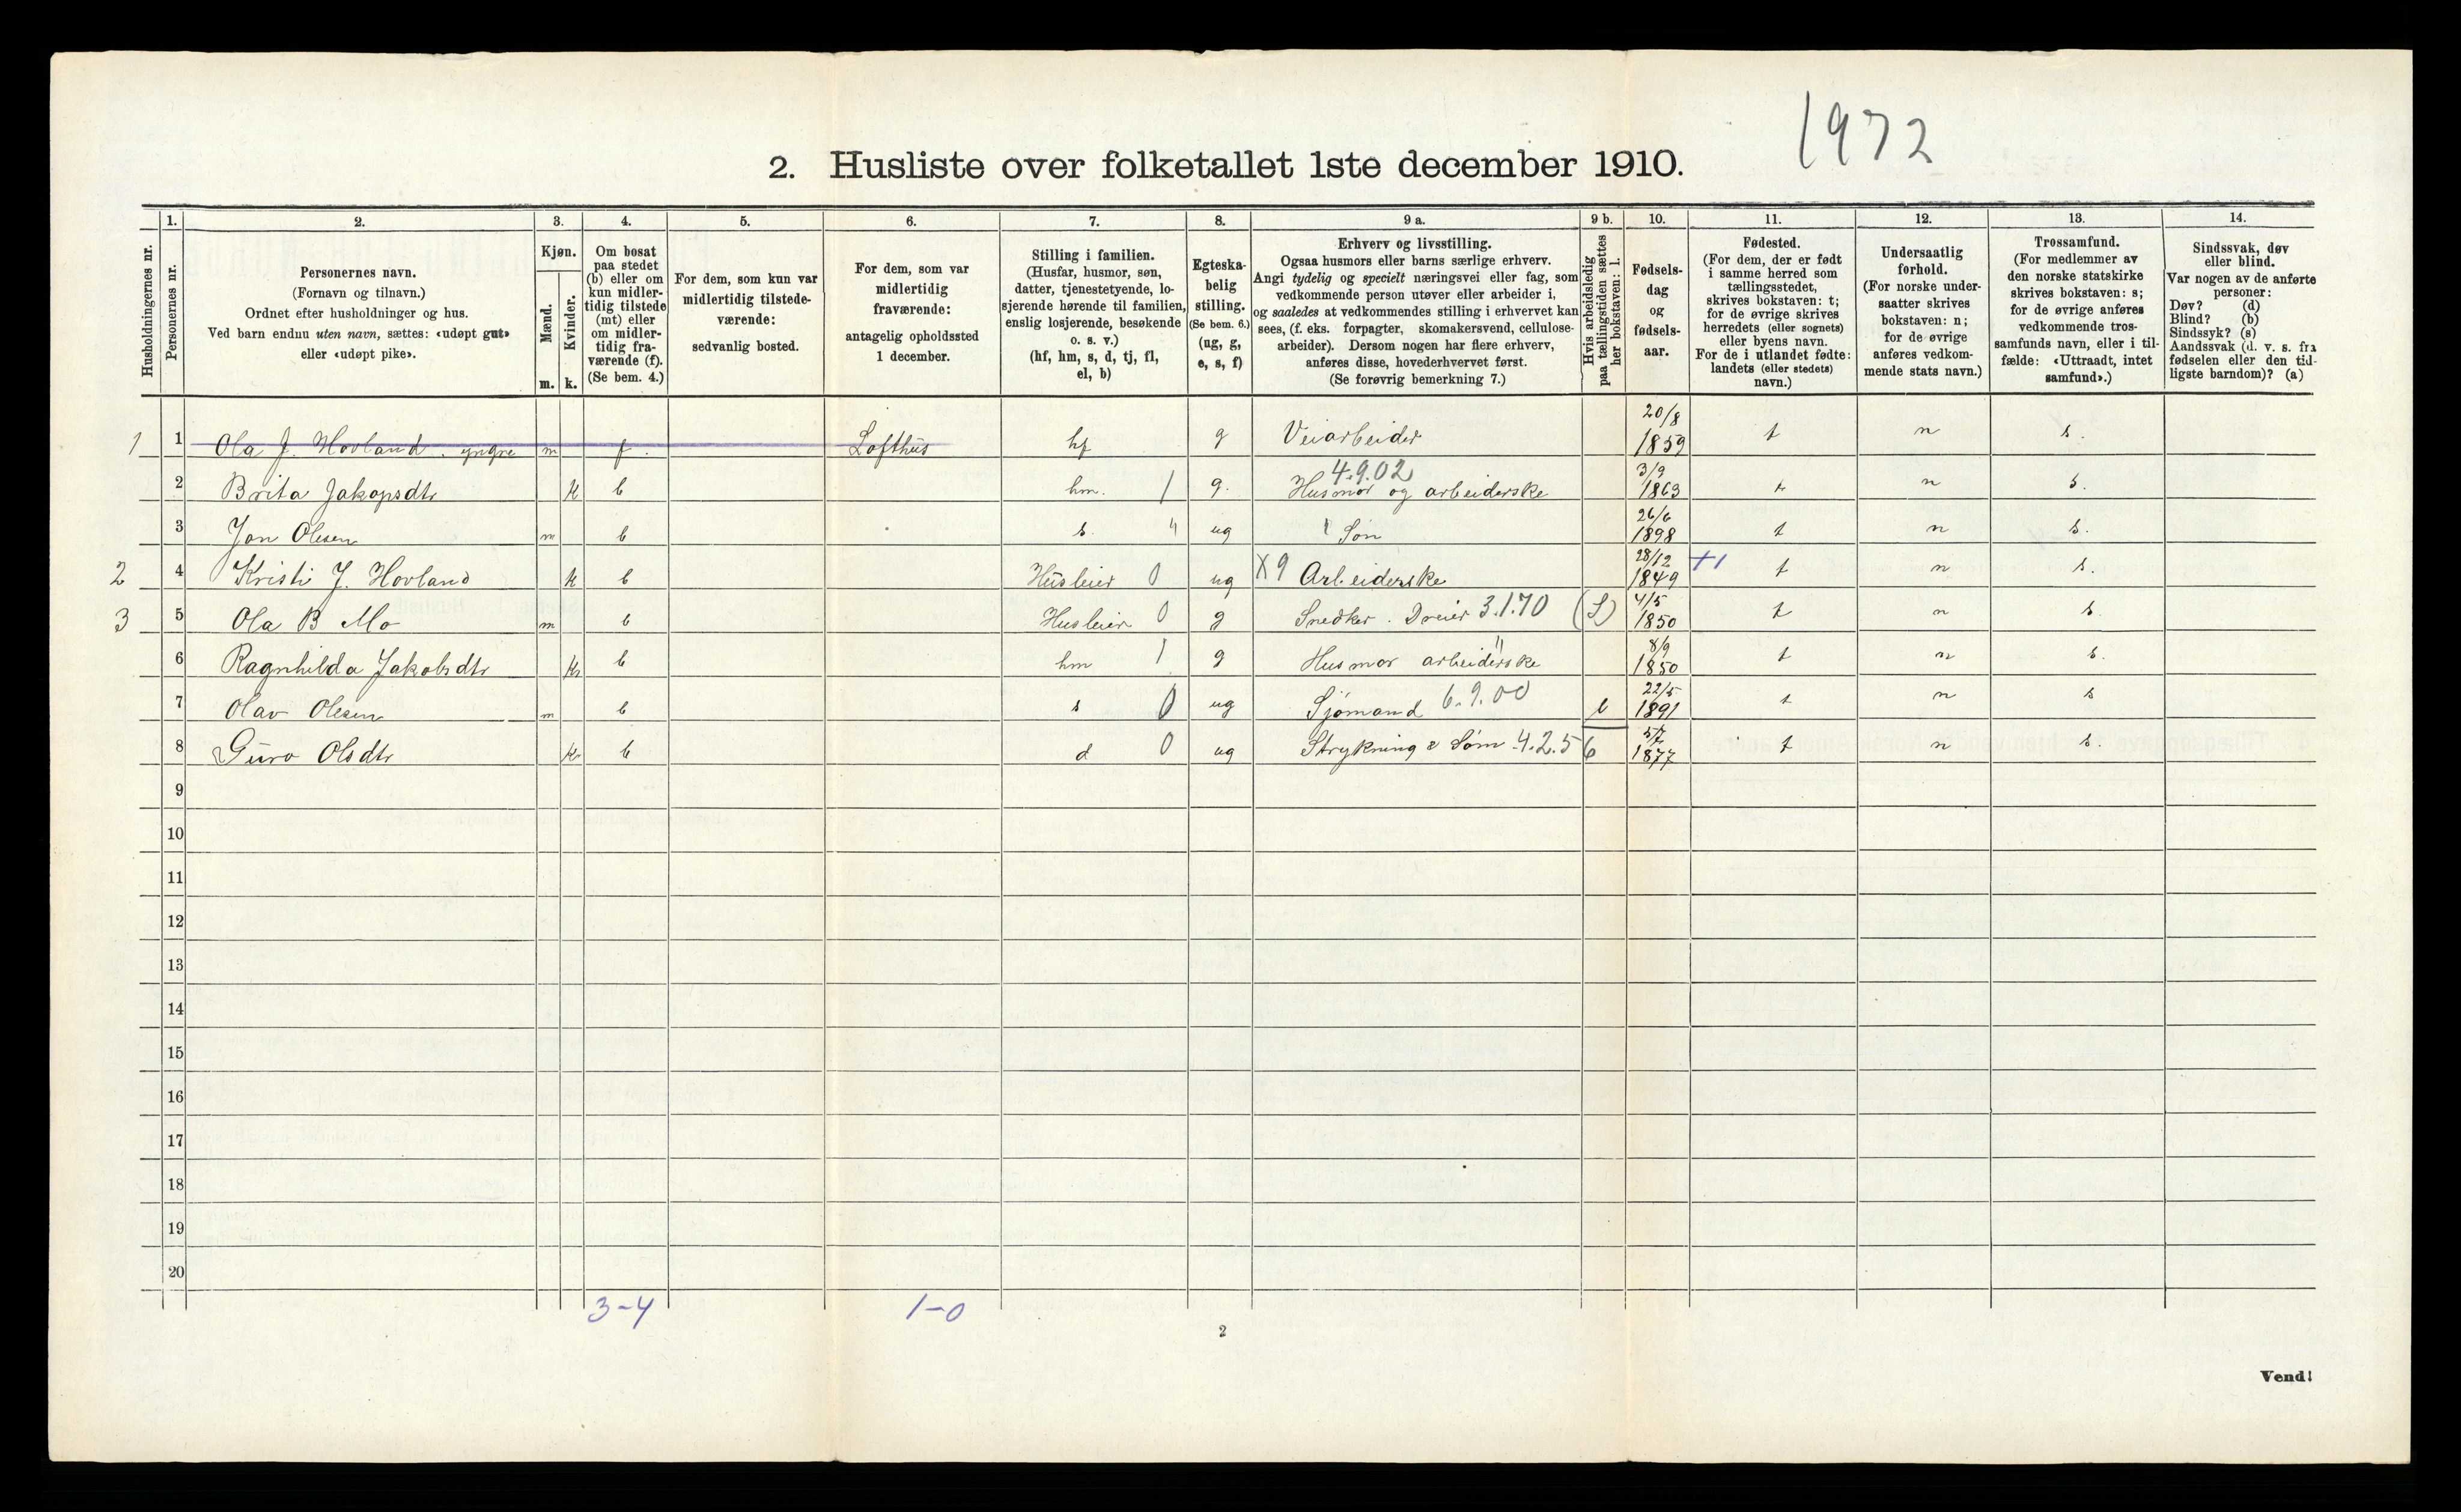 1972
2. Husliste over folketallet 1ste december 1910.
Husholdningernes nr.
1.
Personernes nr.
2.
Personernes navn.
(Fornavn og tilnavn.)
Ordnet efter husholdninger og hus.
Ved barn endnu uten navn, sættes: «udøpt gut»
eller «udøpt pike».
3.
Kjøn.
Mænd.
Kvinder.
m. k.
4.
Om bosat
paa stedet
(b) eller om
kun midler-
tidig tilstede
(mt) eller
om midler-
tidig fra-
værende (f).
(Se bem. 4.)
5.
For dem, som kun var
midlertidig tilstede-
værende:
sedvanlig bosted.
6.
For dem, som var
midlertidig
fraværende:
antagelig opholdssted
1 december.
7.
Stilling i familien.
(Husfar, husmor, søn,
datter, tjenestetyende, lo-
sjerende hørende til familien,
enslig losjerende, besøkende
o. s. v.)
(hf, hm, s, d, tj, fl,
el, b)
8.
Egteska-
belig
stilling.
(Se bem. 6.)
(ug, g,
e, s, f)
9 a.
Erhverv og livsstilling.
Ogsaa husmors eller barns særlige erhverv.
Angi tydelig og specielt næringsvei eller fag, som
vedkommende person utøver eller arbeider i,
og saaledes at vedkommendes stilling i erhvervet kan
sees, (f. eks. forpagter, skomakersvend, cellulose-
arbeider). Dersom nogen har flere erhverv,
anføres disse, hovederhvervet først.
(Se forøvrig bemerkning 7.)
9 b.
Hvis arbeidsledig
paa tællingstiden sættes
her bokstaven: l.
10.
Fødsels-
dag
og
fødsels-
aar.
11.
Fødested.
(For dem, der er født
i samme herred som
tællingsstedet,
skrives bokstaven: t;
for de øvrige skrives
herredets (eller sognets)
eller byens navn.
For de i utlandet fødte:
landets (eller stedets)
navn.)
12.
Undersaatlig
forhold.
(For norske under-
saatter skrives
bokstaven: n;
for de øvrige
anføres vedkom-
mende stats navn.)
13.
Trossamfund.
(For medlemmer av
den norske statskirke
skrives bokstaven: s;
for de øvrige anføres
vedkommende tros-
samfunds navn, eller i til-
fælde: «Uttraadt, intet
samfund».)
14.
Sindssvak, døv
eller blind.
Var nogen av de anførte
personer:
Døv? (d)
Blind? (b)
Sindssyk? (s)
Aandssvak (d. v. s. fra
fødselen eller den tid-
ligste barndom)? (a)
1 1 Ola J. Hovland. yngre m f. Lofthus hf g Veiarbeider 20/8 1859 t n s.
2 Brita Jakopsdtr k b hm. 1 g. Husmor og arbeiderske 4.9.02 3/9 1863 t n s.
3 Jon Olesen m b s. " ug " Søn 26/6 1898 t n s.
2 4 Kristi J. Hovland k b Husleier 0 ug X9 Arbeiderske 28/12 1849 +1 t n s.
3 5 Ola B Mo m b Husleier 0 g Snedker. Dreier 3.1.70 (S) 4/5 1850 t n s.
6 Ragnhilda Jakobsdtr k b hm 1 g Husmor arbeiderske " 8/9 1850 t n s.
7 Olav Olesen m b s 0 ug Sjømand 6.9.00 l 22/5 1891 t n s
8 Guro Olsdtr k b d 0 ug Strykning & Søm 4.2.56 5/7 1877 t n s.
9
10
11
12
13
14
15
16
17
18
19
20
3-4 1-0
2
Vend!